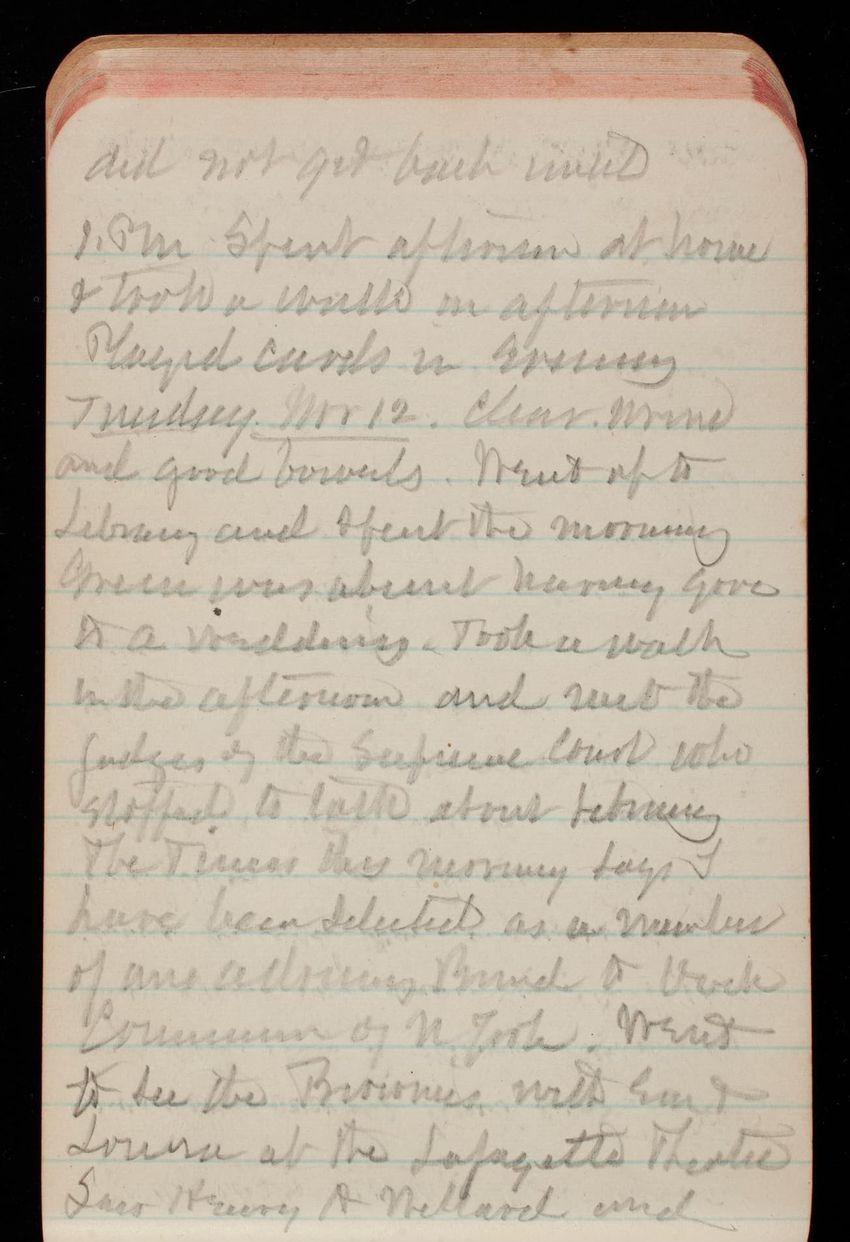 did not get back until
1. PM Spent afternoon at home
& Took a walk in afternoon
Played cards in Evening
Tuesday. Nov 12. Clear. Urine
and good bowels. Went up to
Library and spent the morning
Green was absent having gone
to a wedding. Took a walk
in the afternoon and met the
Judges of the Supreme Court who
stopped to talk about Library
The Times this morning says I
have been selected as a member
of an advisory Board to Dock
Commission of N. York. Went
to see the Brownies with Em &
Louisa at the Lafayette Theatre
Saw Henry A Willard and